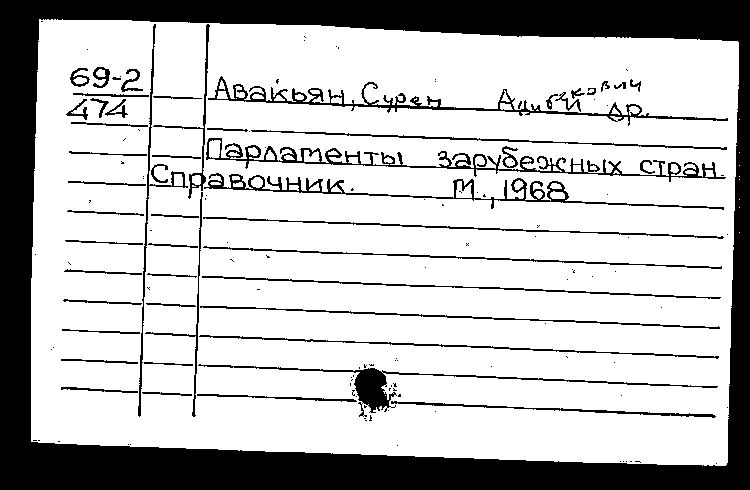 69-2
474
Авакьян, Сурен Адибекович и др.
Парламенты зарубежных стран.
Справочник. М., 1968